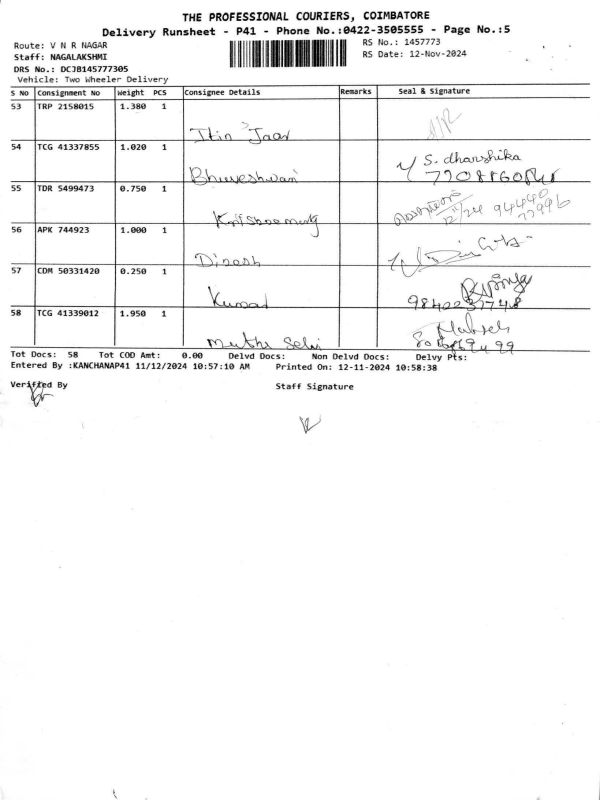 THE PROFESSIONAL COURIERS, COIMBATORE
Delivery Runsheet - P41 - Phone No.:0422-3505555 - Page No.:5
Route: V N R NAGAR
Staff: NAGALAKSHMI
DRS No.: DCJB145777305
Vehicle: Two Wheeler Delivery
RS No.: 1457773
RS Date: 12-Nov-2024
S No Consignment No Weight PCS Consignee Details Remarks Seal & Signature
53 TRP 2158015 1.380 1
54 TCG 41337855 1.020 1
Bhuveshwari S. dharshika
55 TDR 5499473 0.750 1
12/11/24 94440
77996
56 APK 744923 1.000 1
Dinesh
57 CDM 50331420 0.250 1
Kumar
58 TCG 41339012 1.950 1
Muthu Selvi
Tot Docs: 58 Tot COD Amt: 0.00 Delvd Docs: Non Delvd Docs: Delvy Pts:
Entered By :KANCHANAP41 11/12/2024 10:57:10 AM Printed On: 12-11-2024 10:58:38
Verified By Staff Signature